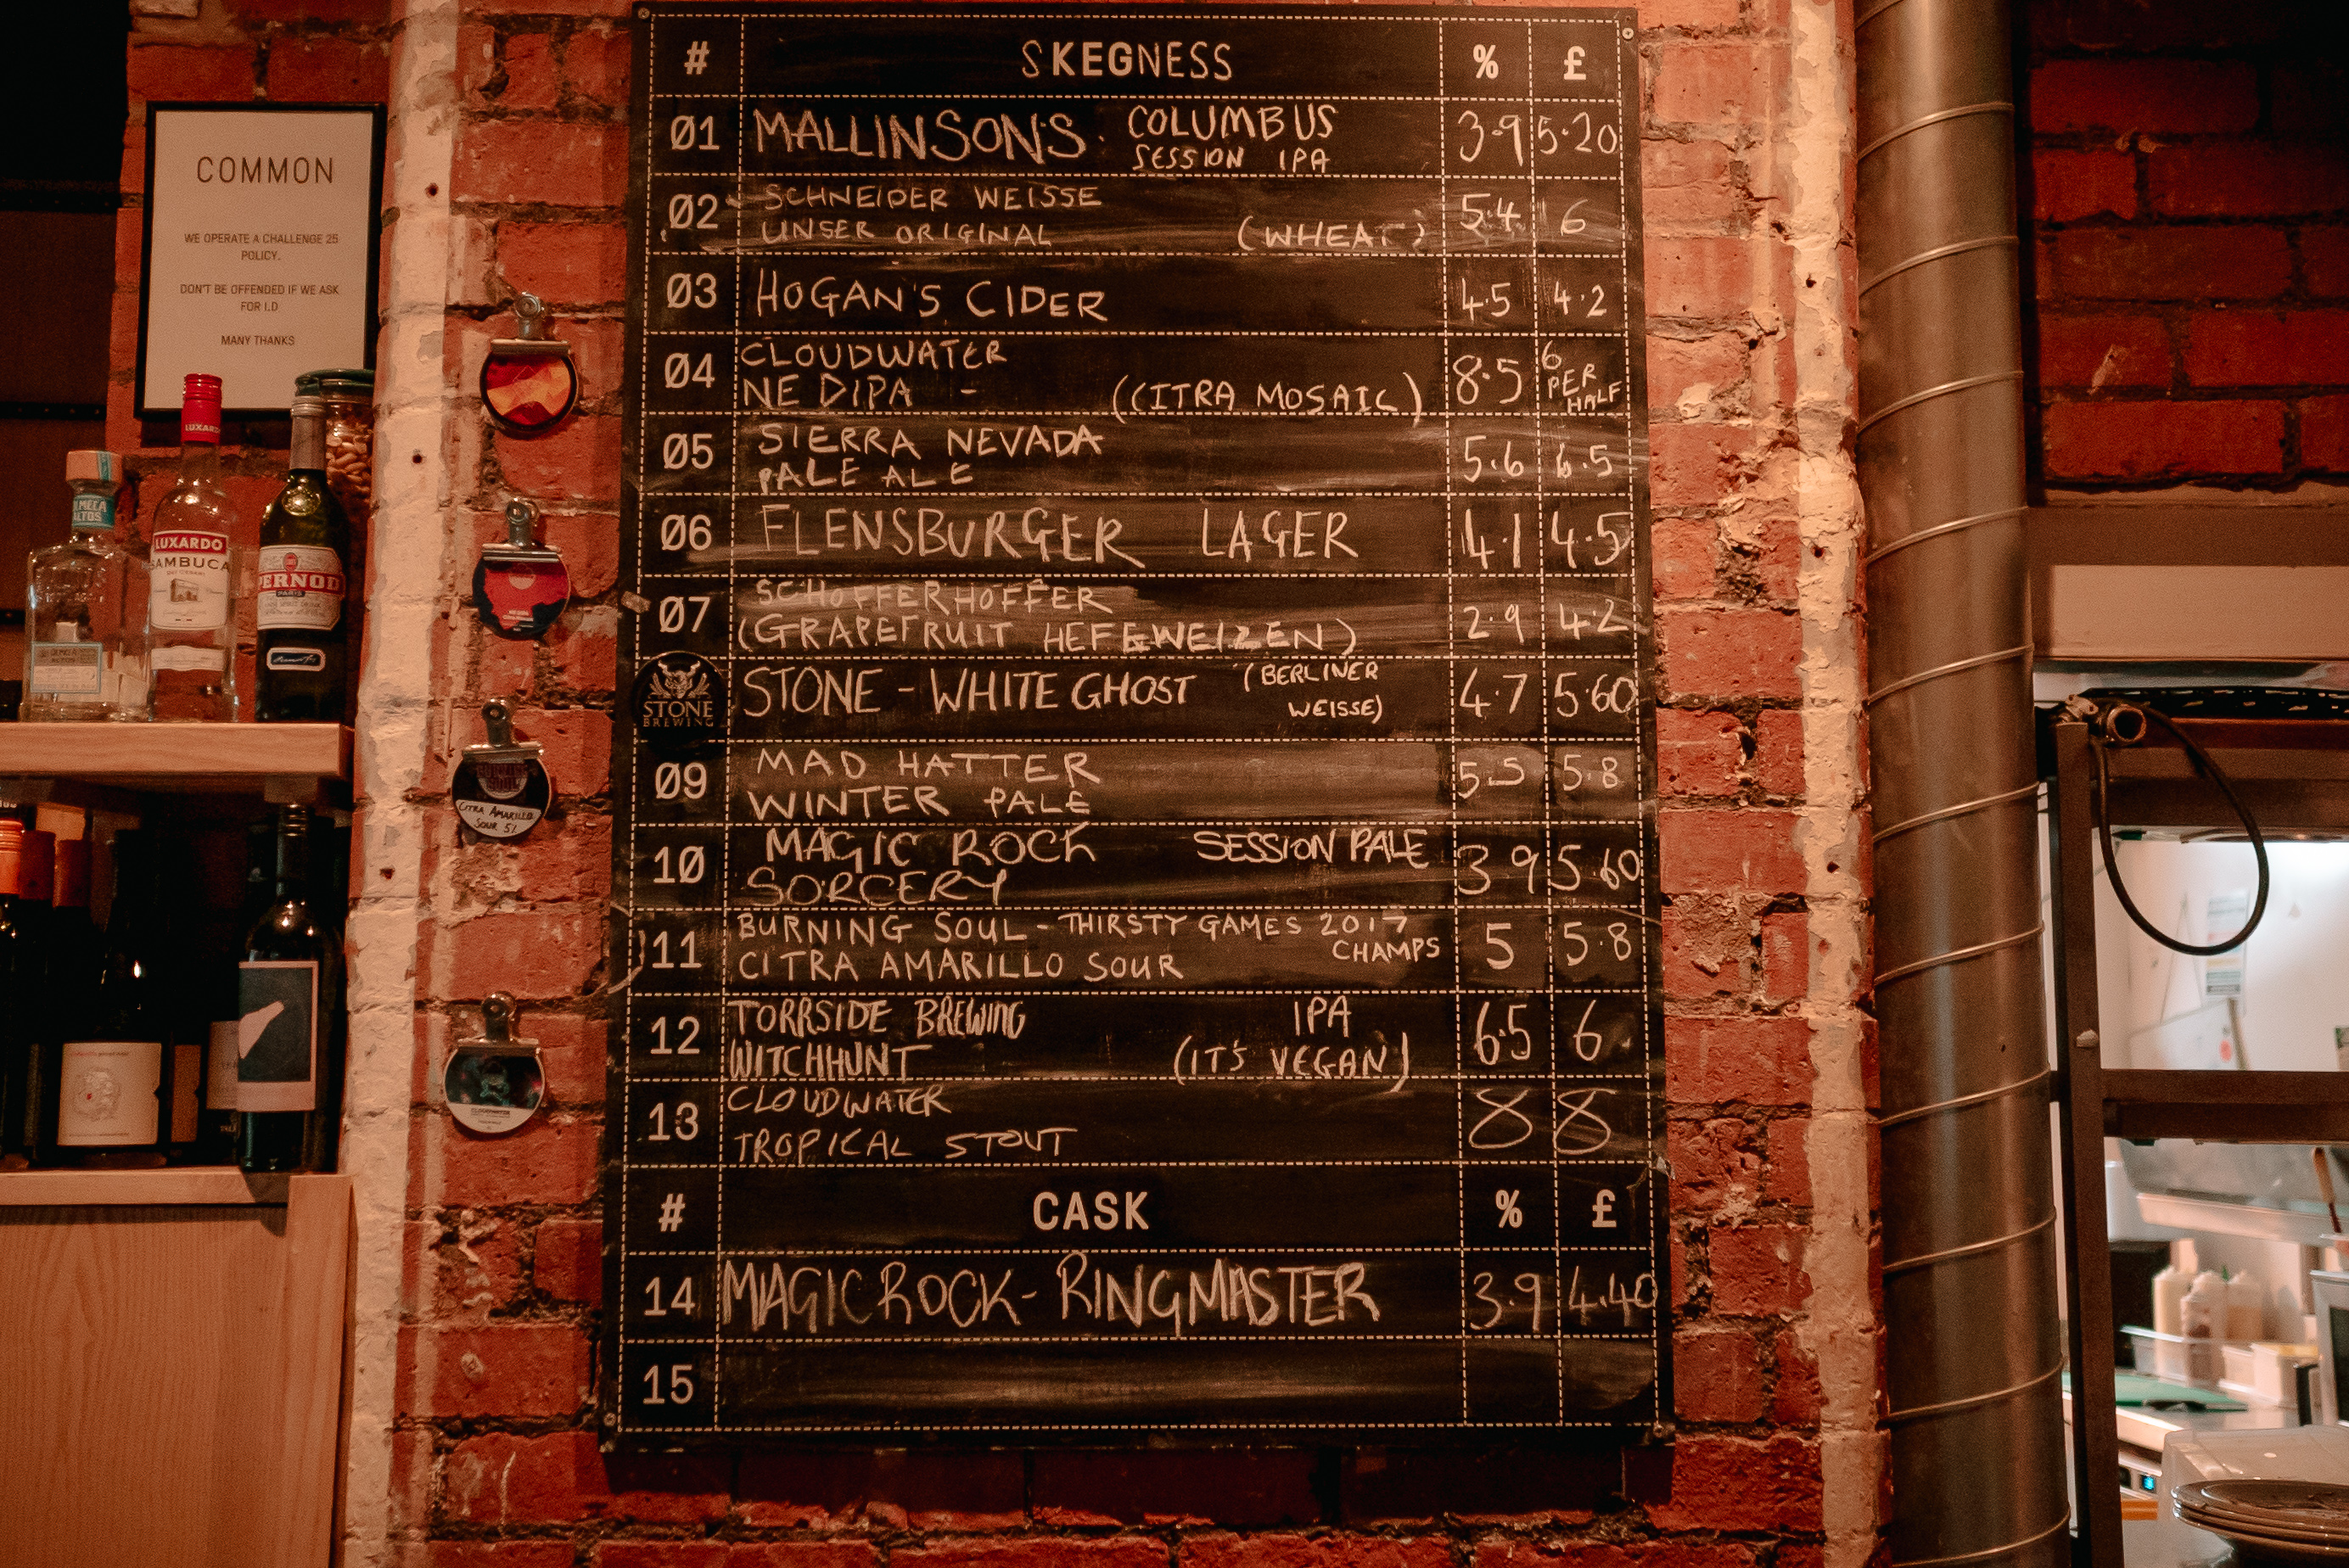 COMMON
WE OPERATE A CHALLENGE 25
POLICY.
DON'T BE OFFENDED IF WE ASK
FOR I.D
MANY THANKS
# SKEGNESS % £
Ø1 MALLINSON'S COLUMBUS 3.9 5.20
SESSION IPA
Ø2 SCHNEIDER WEISSE 5.4 6
UNSER ORIGINAL (WHEAT)
Ø3 HOGAN'S CIDER 4.5 4.2
Ø4 CLOUDWATER 8.5 6
NE DIPA - (CITRA MOSAIC) PER
HALF
Ø5 SIERRA NEVADA 5.6 6.5
PALE ALE
Ø6 FLENSBURGER LAGER 4.1 4.5
Ø7 SCHOFFERHOFFER 2.9 4.2
(GRAPEFRUIT HEFEWEIZEN)
STONE
BREWING
STONE - WHITE GHOST (BERLINER 4.7 5.60
WEISSE)
Ø9 MAD HATTER 5.5 5.8
WINTER PALE
1Ø MAGIC ROCK SESSION PALE 3.9 5.60
SORCERY
11 BURNING SOUL - THIRSTY GAMES 2017 5 5.8
CHAMPS
CITRA AMARILLO SOUR
12 TORRSIDE BREWING IPA 6.5 6
WITCHHUNT (IT'S VEGAN)
13 CLOUDWATER 8 8
TROPICAL STOUT
# CASK % £
14 MAGIC ROCK - RINGMASTER 3.9 4.40
15
LUXARDO
ALTOS
LUXARDO
SAMBUCA
PERNOD
PARIS
CITRA AMARILLO
SOUR 5%
CLOUDWATER